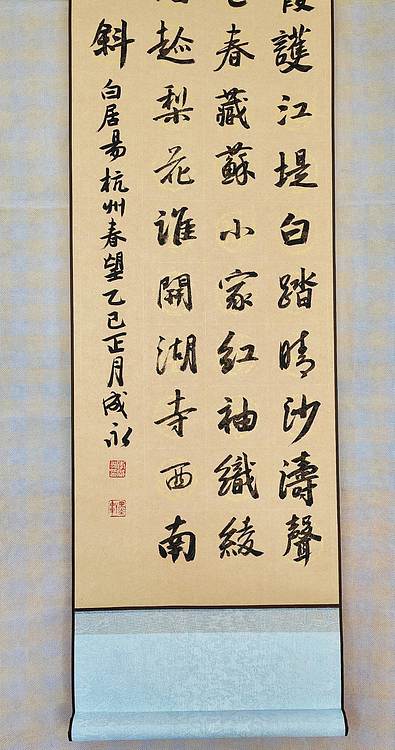 霞護江堤白踏晴沙濤聲
色春藏蘇小家紅袖織綾
趁梨花誰開湖寺西南
斜 白居易杭州春望乙巳正月成永